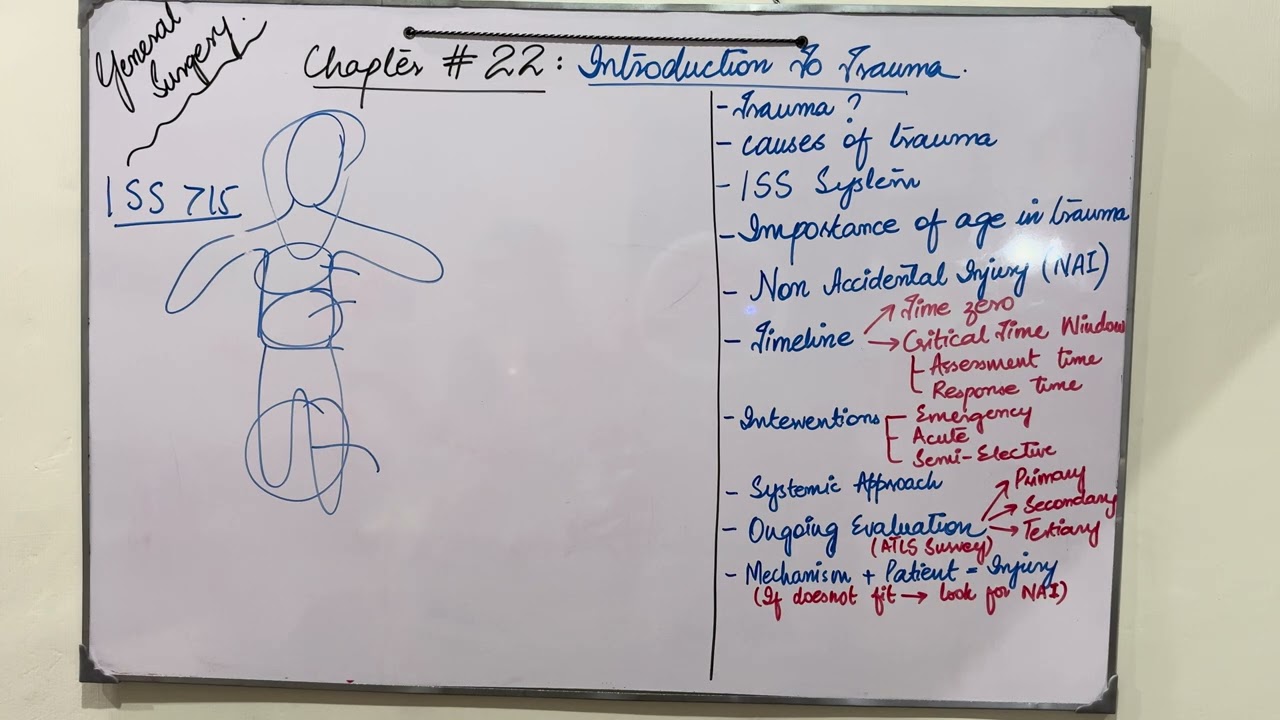 General Surgery.
Chapter # 22: Introduction To Trauma.
ISS >15
- Trauma?
- causes of trauma
- ISS System
- Importance of age in trauma
- Non Accidental Injury (NAI)
- Timeline → Time zero
→ Critical Time Window
Assessment time
Response time
- Interventions Emergency
Acute
Semi-Elective
- Systemic Approach
- Ongoing Evaluation → Primary
→ Secondary
→ Tertiary
(ATLS Survey)
- Mechanism + Patient = Injury
(If doesnot fit → look for NAI)